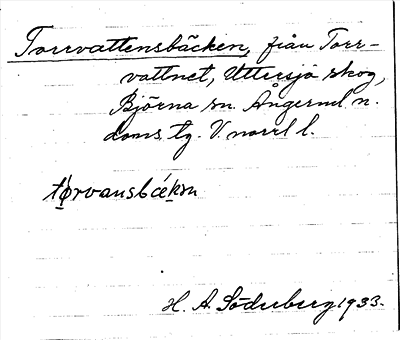 Torrvattensbäcken, från Torr-
vattnet, Uttersjö skog,
Björna sn. Ångerml n.
doms. tg. V. norrl l.
tørvansbäkɷn
H. A. Söderberg 1933.